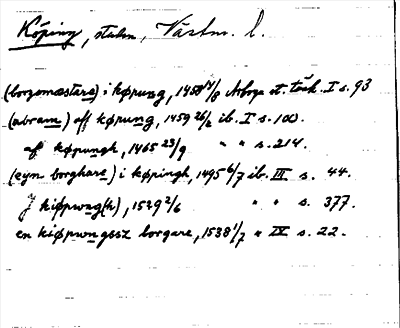 Köping, staden, Västm. l.
(borgomæstare) i køpung, 1458 14/8 Arboga st. täck. I s. 93
(abram) aff køpung, 1459 26/2 ib. I s. 100.
aff køpungh, 1465 23/9 " " s. 214.
(eyn borghare) i køpingh, 1495 6/7 ib. III s. 44.
J kiøpwng(h), 1529 2/6 " " s. 377.
en kiøpwngssz borgare, 1538 1/7 " IV s. 22.